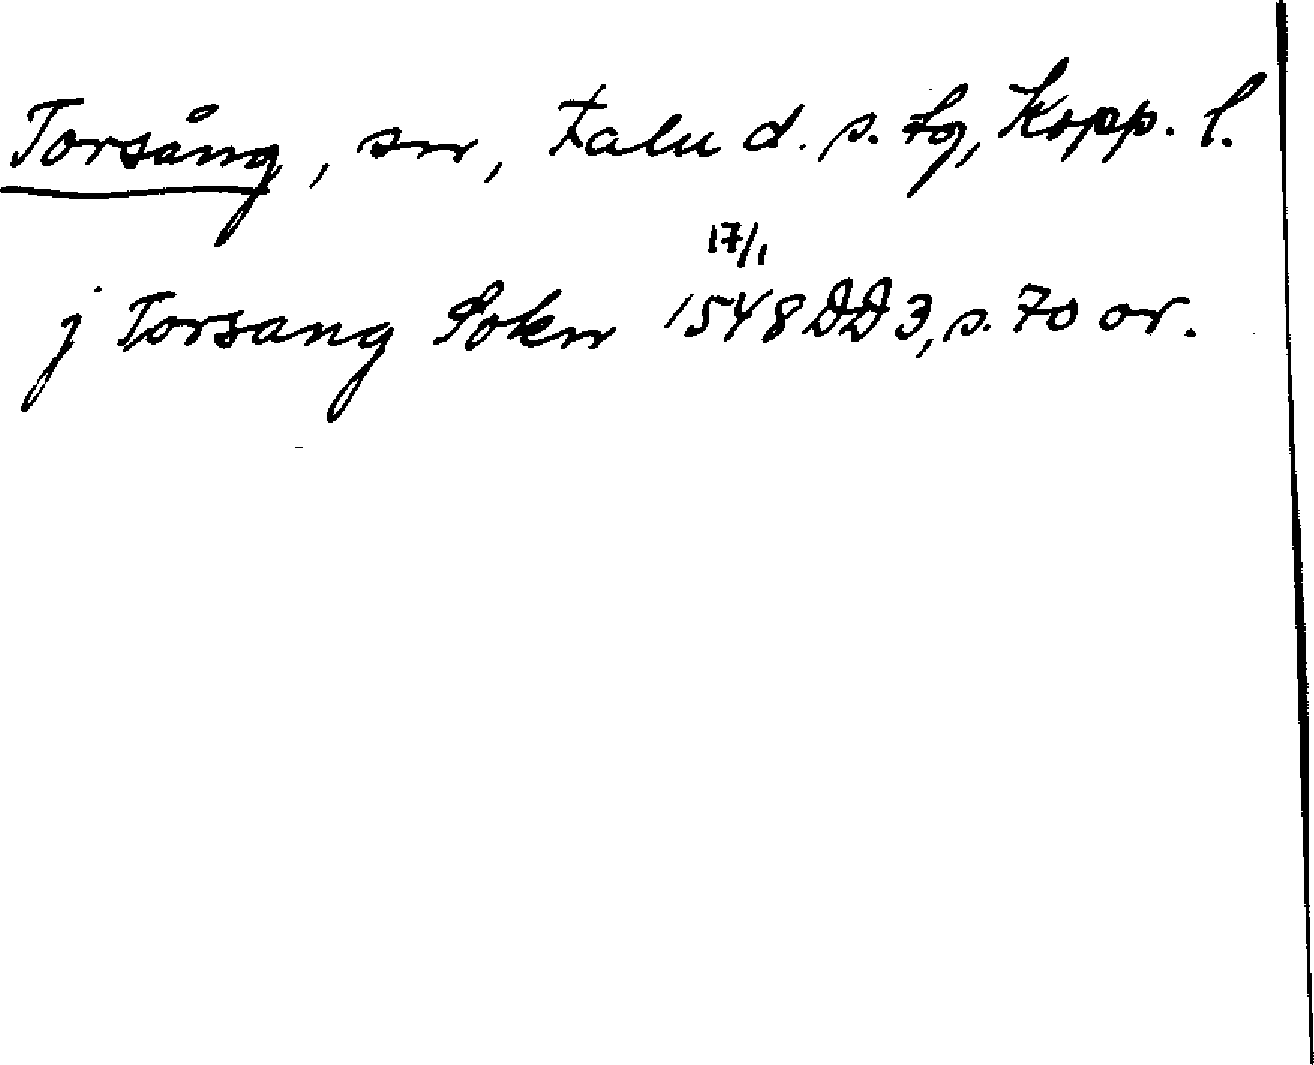 Torsång, sn, Falu d. s. fg, Kopp. l.
17/1
j Torsang Sokn 1548 DD 3, s. 70 or.